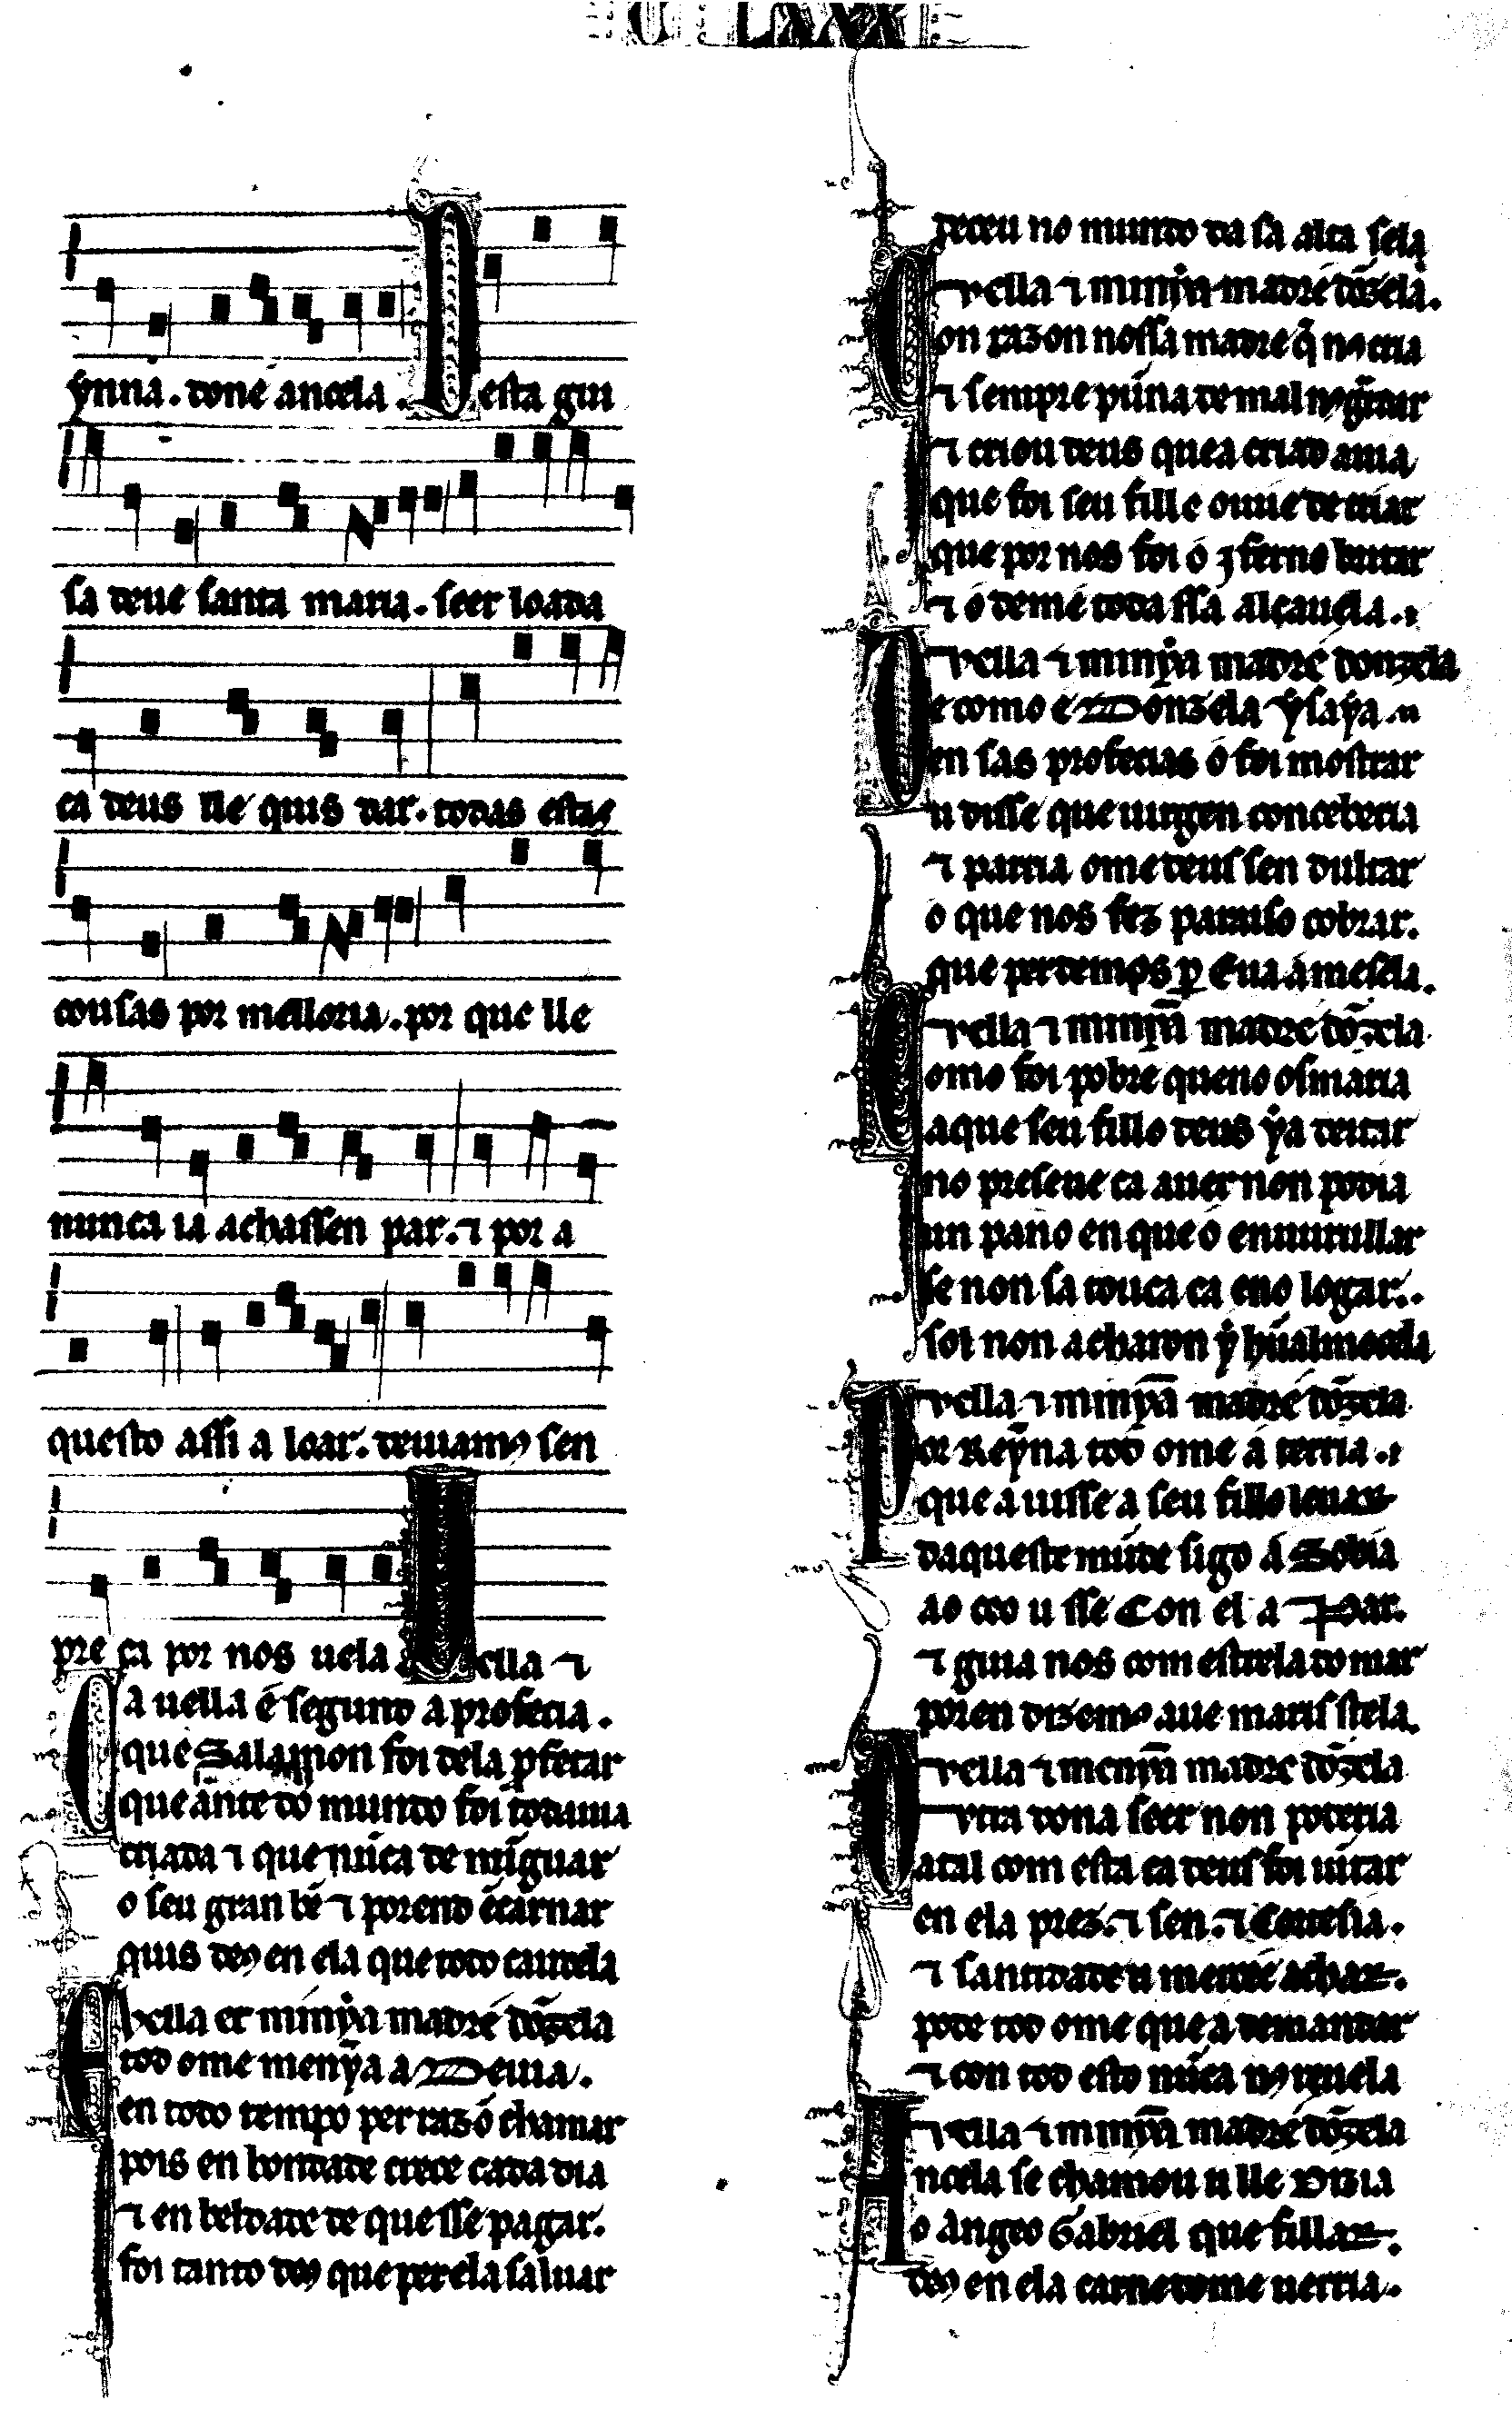 C LXXX
ỹnna. done ancela. Desta gui
sa deue santa maria. seer loada
ca deus lle quis dar. todas estas
cousas por melloria. por que lle
nunca ia achassen par. ⁊ por a
questo assi a loar. deuiamꝯ sen
pre ca por nos uela Vella ⁊
Ca uella é segund a profecia.
que Salamon foi dela pfetar
que ante do mundo foi todauia
criada ⁊ que nũca de mĩguar
o seu gran bẽ ⁊ porend ẽcarnar
quis deꝯ en ela que todo caudela
Vella et minỹa madre dõzela
E tod ome menỹa a Deuia.
en todo tempo per razõ chamar
pois en bondade crece cada dia
⁊ en beldade de que sse pagar.
foi tanto deꝯ que per ela saluar
deceu no mundo da sa alta sela
Vella ⁊ minỹa madre dõzela.
Con razon nossa madre q̃ nos cria
⁊ sempre pũna de mal nos g̃rdar
⁊ criou deus que a criad auia
que foi seu fill e ouue de criar
que por nos foi o ĩferno britar
⁊ o demo e toda ssa alcauela.
Vella ⁊ minỹa madre donzela
De como e Donzela Ysaỹa.
en sas profecias o foi mostrar
u disse que uirgen conceberia
⁊ parria ome deus sen dultar
o que nos fez paraiso cobrar.
que perdemos p Eua a mesela.
Vella ⁊ minỹa madre dõzela
Como foi pobre queno osmaria
a que seu fillo deus ỹa deitar
no preseue ca auer non podia
un pano en que o enuurullar
se non sa touca ca eno logar.
sol non acharon ỹ hũa almocela
Vella ⁊ minỹa madre dõzela
Por Reỹna tod ome a terria.
que a uisse a seu fillo leuar
daqueste mũde sigo a Sobia
ao ceo u sse Con el a Par.
⁊ guia nos com estrela do mar
poren dizemꝯ aue maris stela.
Vella ⁊ menỹa madre dõzela
Outra dona seer non poderia
atal com esta ca deus foi iũtar
en ela prez. ⁊ sen. ⁊ Cortesia.
⁊ santidade u mercee achar.
pode tod ome que a demandar
⁊ con tod esto nũca nꝯ reuela
Vella ⁊ minỹa madre dõzela
Ancela se chamou u lle Dizia
o angeo Gabriel que fillar.
deꝯ en ela carne dome uerria.